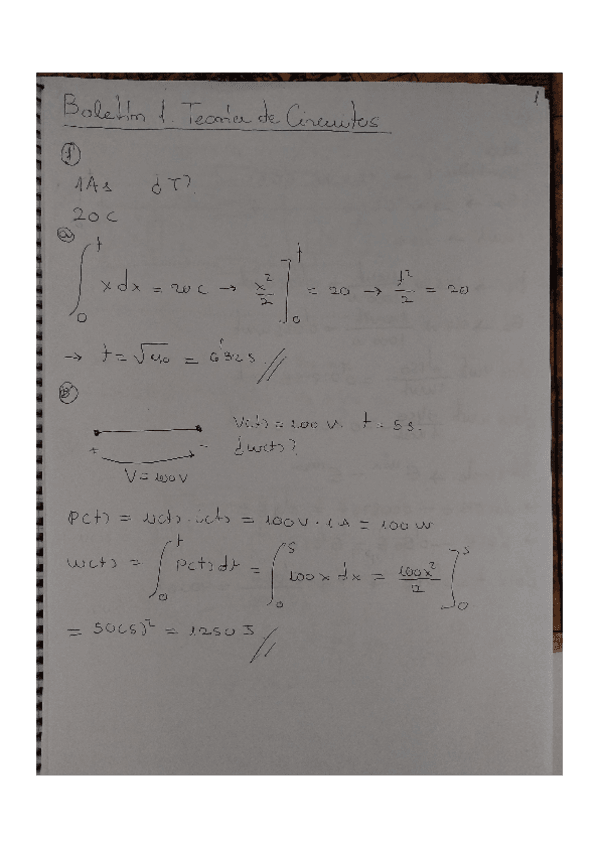 1
Boletín 1. Teoría de Circuitos
1
1As ¿T?
20C
a
∫₀ᵗ x dx = 20C → x²/2 ]₀ᵗ = 20 → t²/2 = 20
→ t = √40 = 6'32 s //
b
V(t) = 100 V t = 5s.
+ - ¿w(t)?
V = 100V
p(t) = v(t) · i(t) = 100V · 1A = 100W
w(t) = ∫₀ᵗ p(t) dt = ∫₀⁵ 100x dx = 100x²/2 ]₀⁵
= 50(5)² = 1250 J //